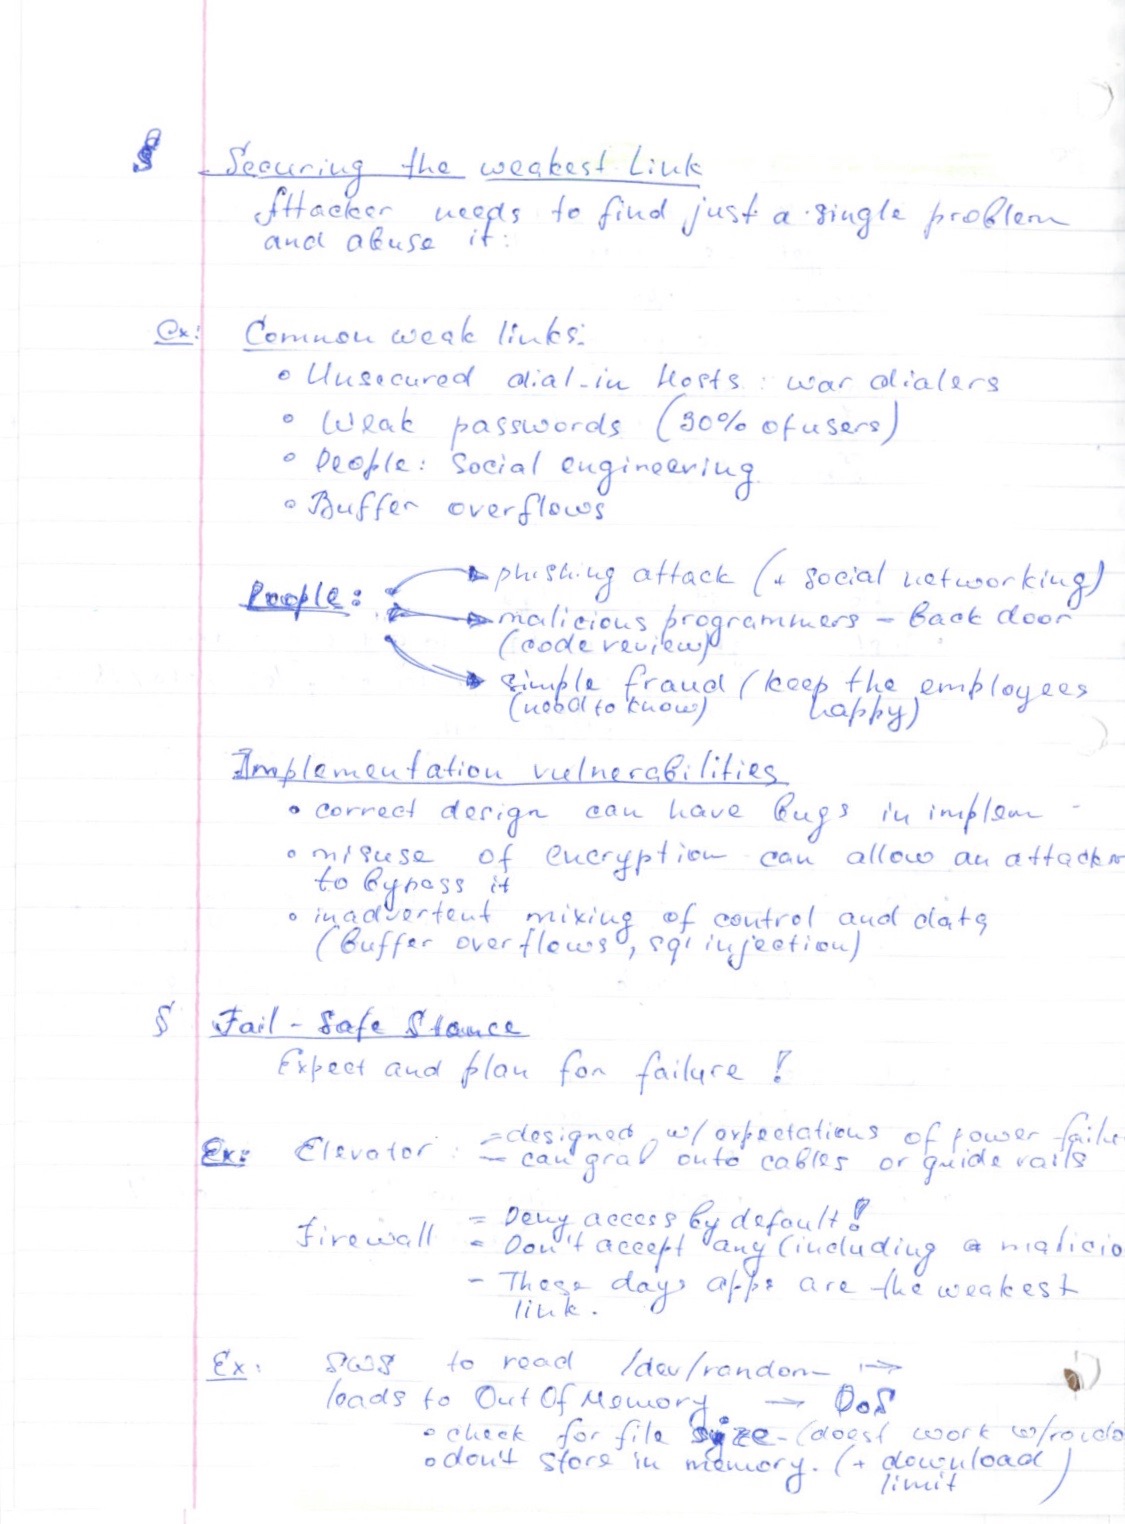 § Securing the weakest Link
Attacker needs to find just a single problem
and abuse it:
Ex: Common weak links:
• Unsecured dial-in Hosts : war dialers
• Weak passwords (30% of users)
• People: Social engineering
• Buffer overflows
People: phishing attack (+ social networking)
malicious programmers – Back door
(code review)
simple fraud (keep the employees
(need to know) happy)
Implementation vulnerabilities
• correct design can have bugs in implem -
• misuse of encryption can allow an attacker
to bypass it
• inadvertent mixing of control and data
(Buffer overflows, sql injection)
§ Fail - Safe Stance
Expect and plan for failure !
Ex: Elevator : - designed w/ expectations of power failu
- can grab onto cables or guide rails
Firewall - Deny access by default!
- Don't accept any (including a malicio
- These days apps are the weakest
link.
Ex: SWS to read /dev/random →
loads to Out Of Memory → DoS
• check for file size - (doest work w/
• don't store in memory. (+ download
limit )